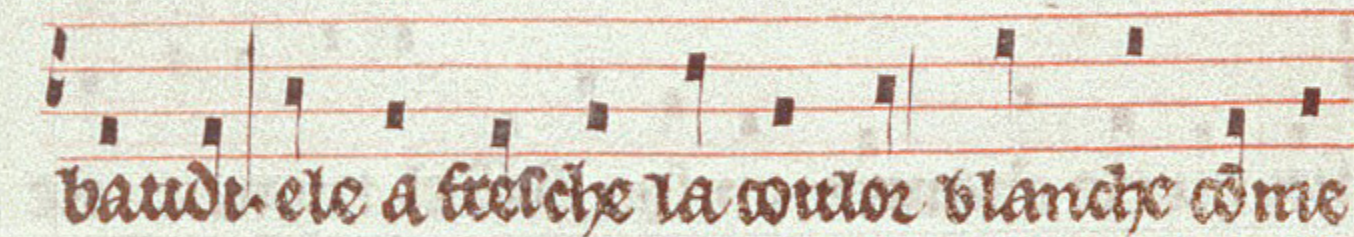 baudi. ele a fresche la coulor blanche cōme